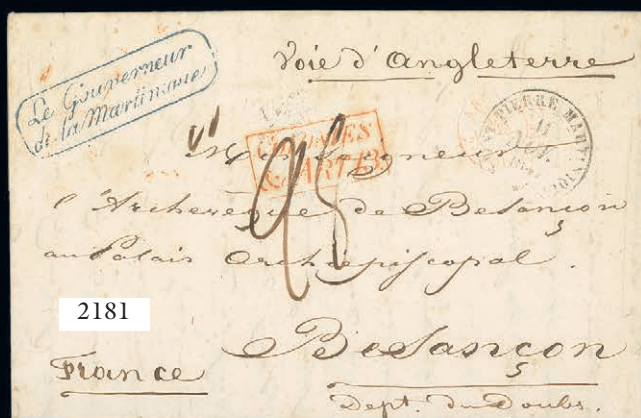 Le Gouverneur
de la Martinique
Voie d'Angleterre
COLONIES
&c. ART. 13
ST PIERRE MARTINIQUE
11
Monseigneur
l'Archevêque de Besançon
au Palais Archiépiscopal.
2181
Besançon
France
Dept. du Doubs.